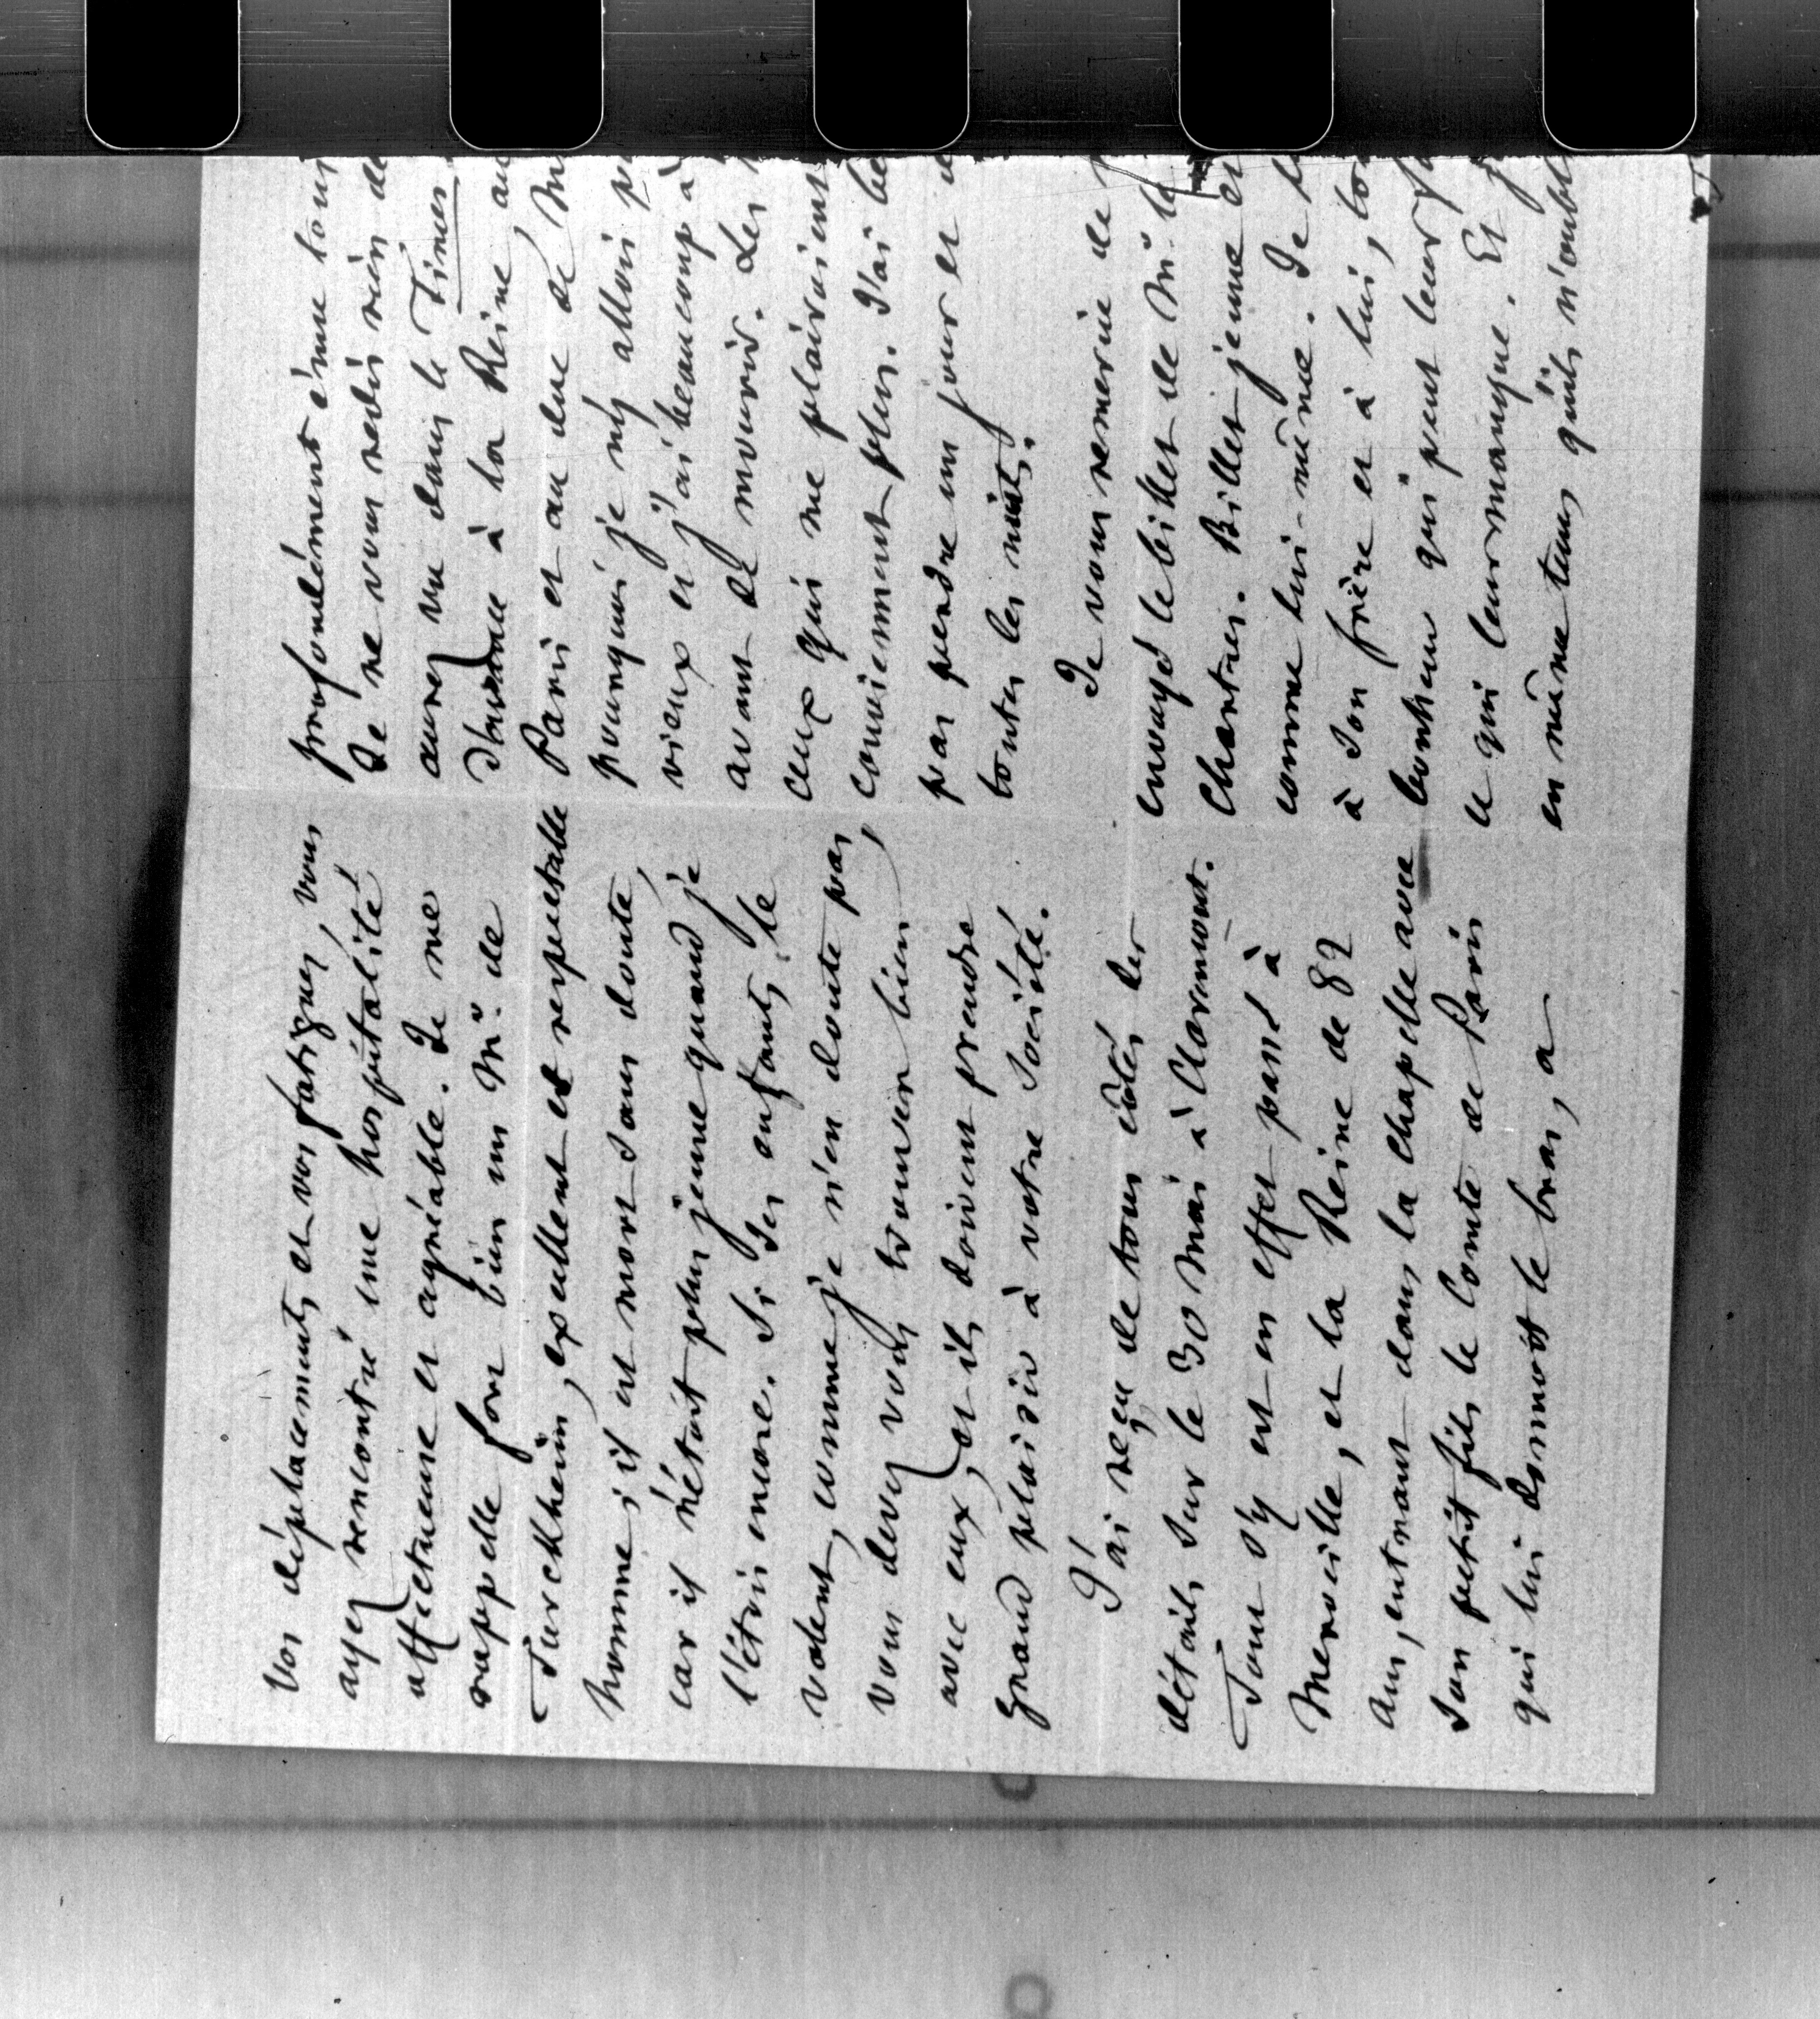 Vos déplacements et vos fatigues, vous
ayez rencontré une hospitalité
affectueuse et agréable. Je me
rappelle fort bien un Mr. de
Turckheim, excellent et respectable
homme ; il est mort sans doute,
car il n'étoit plus jeune quand je
l'étois encore. Si ses enfants le
valent, comme je n'en doute pas,
vous devez vous trouver bien
avec eux, et ils doivent prendre
grand plaisir à votre société.
J'ai reçu de tous côtés les
détails sur le 30 mai à Claremont.
Tout s'y est en effet passé à
Merveille, et la Reine de 82
ans, entrant dans la chapelle avec
son petit fils le Comte de Paris
qui lui donnoit le bras, a
profondément émue tous
Je ne vous redis rien de
aurez vu dans le Times
d'avance à la Reine, au
Paris et au duc de M
pourquoi je n'y allois p
vieux et j'ai beaucoup à
avant de mourir. Les
ceux qui me plairoient
conviennent plus. J'ai be
pas perdre un jour et de
toutes les nuits.
Je vous remercie de
envoyé le billet de Mr. le
Chartres. Billet jeune et
comme lui-même. Je
à son frère et à lui, to
bonheur qui peut leur
ce qui leur manque. Et j
en même tems qu'ils n'oubli